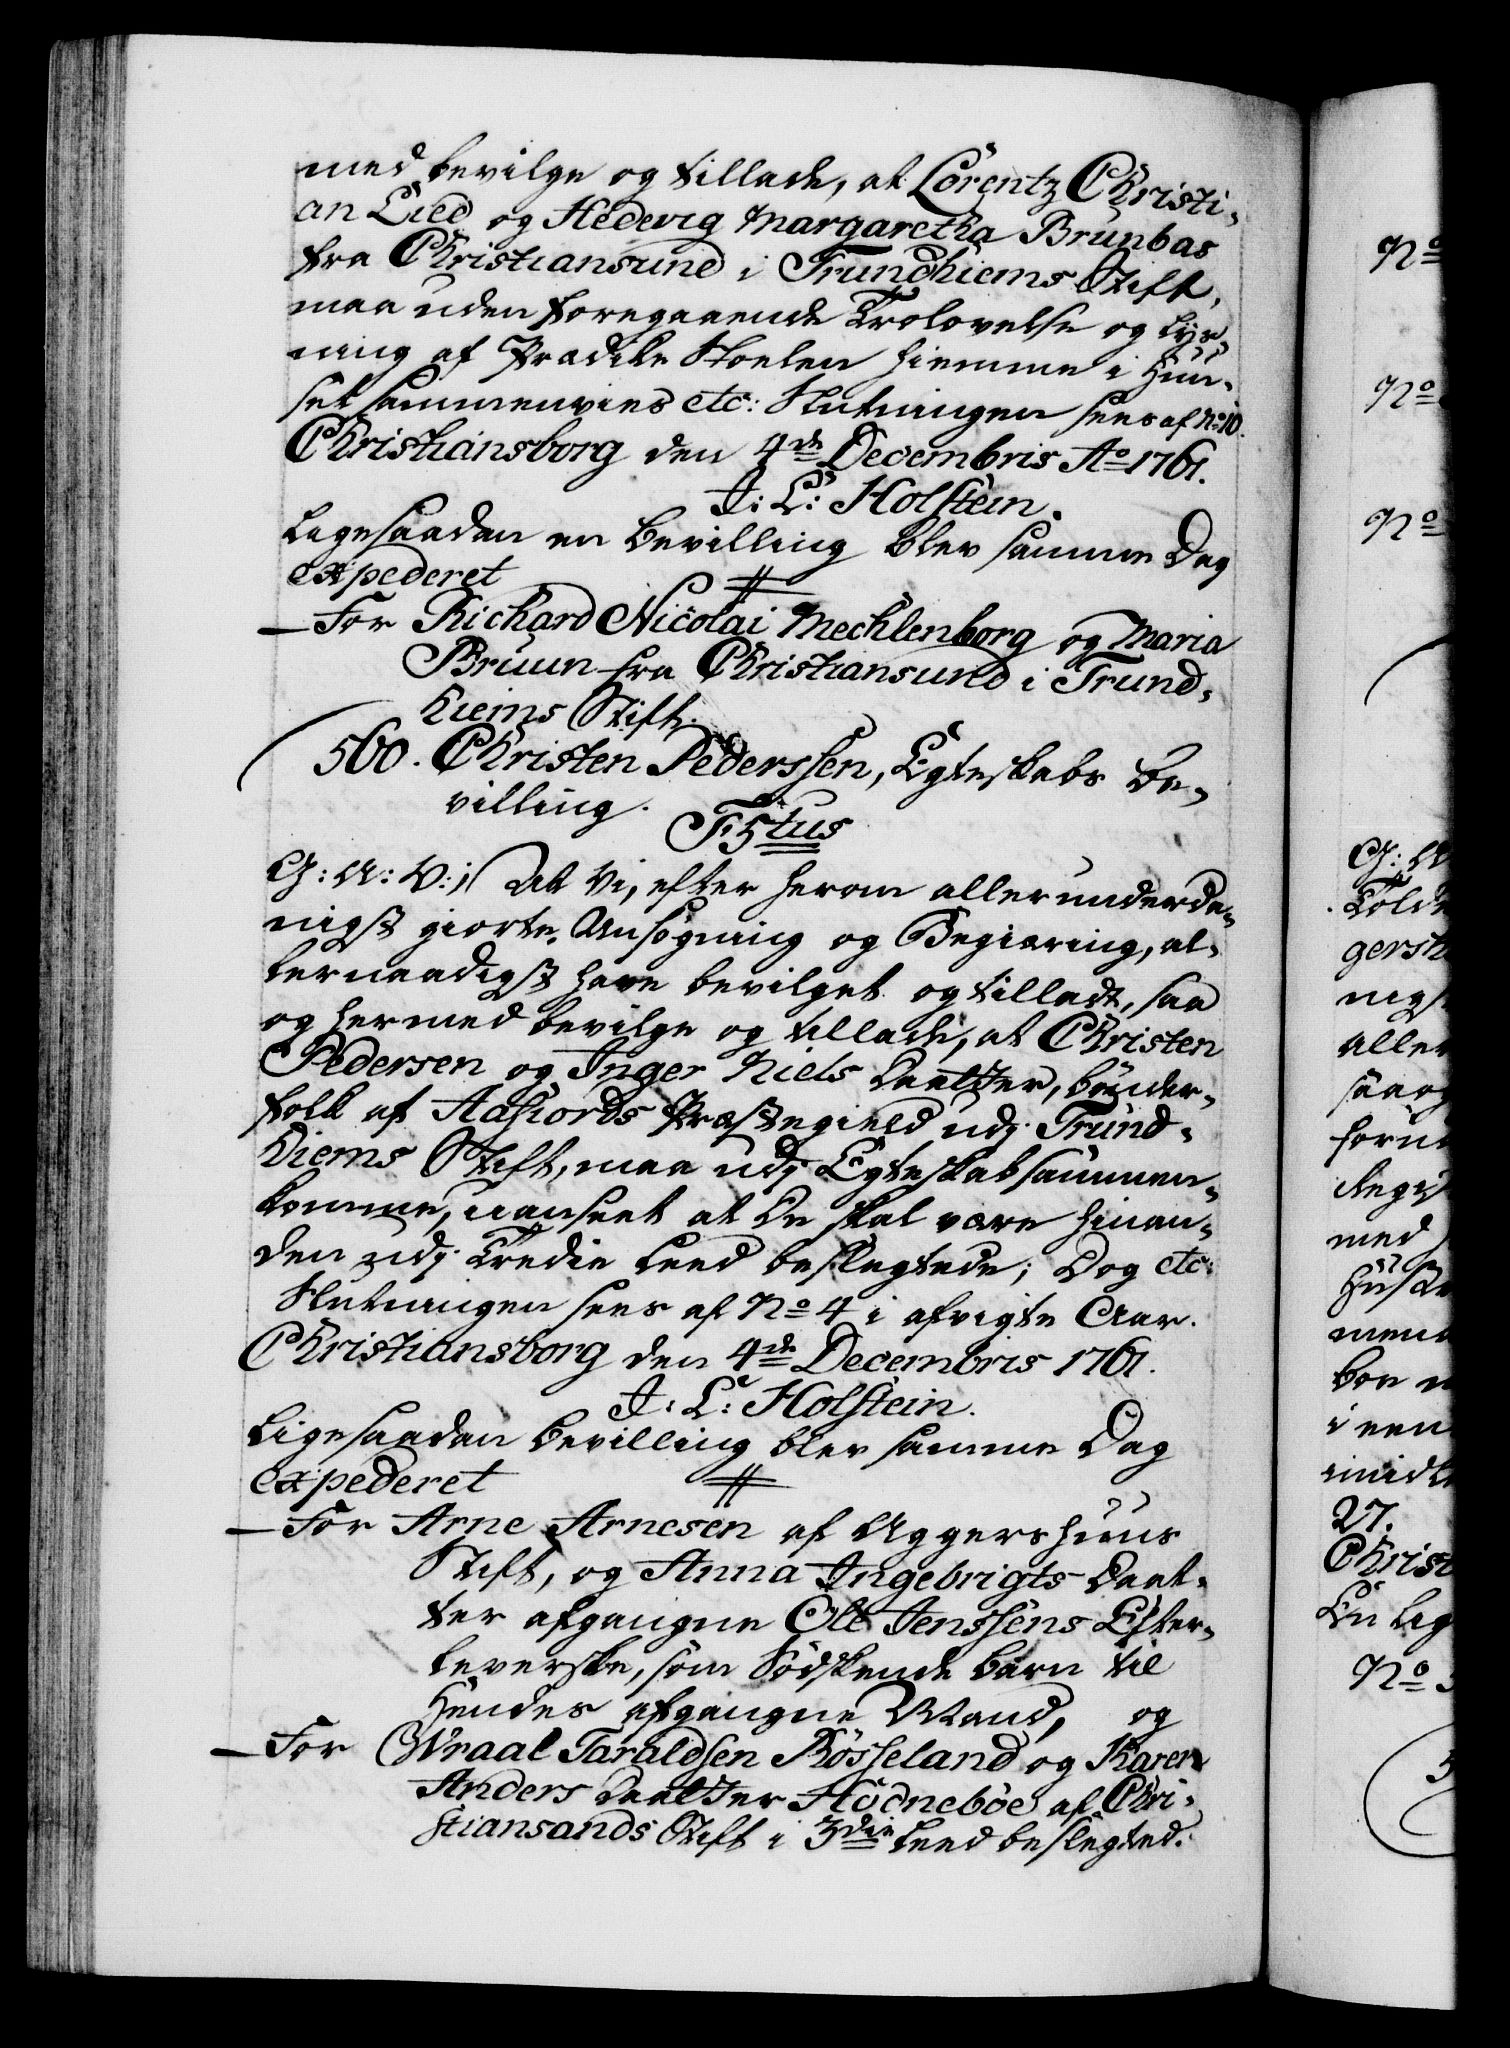 med bevilge og tillade, at Lorentz Christi-
an Lied og Hedevig Margaretha Brunbas
fra Christiansund i Trundhiems Stift,
maa uden foregaaende Trolovelse og lys-
ning af Prædike Stoelen hiemme i Huu-
set sammenvies etc: Slutningen sees af No 10.
Christiansborg den 4de Decembris Ao 1761.
J: L: Holstein.
Ligesaadan en Bevilling blev samme Dag
expederet
— For Richard Nicolai Mechlenborg og Maria
Bruun fra Christiansund i Trund-
hiems Stift.
560. Christen Pederssen, Egteskabs Be-
villing.
F: 5tus
G: A: V:, At Vi, efter herom allerunderda-
nigst giorte Ansøgning og Begiæring, al-
lernaadigst have bevilget og tilladt, saa
og hermed bevilge og tillade, at Christen
Pedersen og Inger Niels Daatter, bønder-
folk af Aafiords Præstegield udj Trund-
hiems Stift, maa udj Egteskab sammen-
komme, uanseet at De skal være hinan-
den udj Tredie Leed beslegtede; Dog etc:
Slutningen sees af No 4 i afvigte Aar.
Christiansborg den 4de Decembris 1761.
J: L: Holstein.
Ligesaadan Bevilling blev samme Dag
expederet
— For Arne Arnesen af Aggershuus
Stift, og Anna Ingebrigts Daat-
ter afgangne Ole Jenssens Efter-
leverske, som Sødskende barn til
hendes afgangne Mand, og
— For Wraal Taraldsen Røsseland og Karen
Anders Daatter Hødnebøe af Chri-
stiansands Stift i 3die Leed beslegted.
No
No
No
G: A
gersh
nigst
aller
saa og
med
bor
i een
27.
Christ
En lig
No